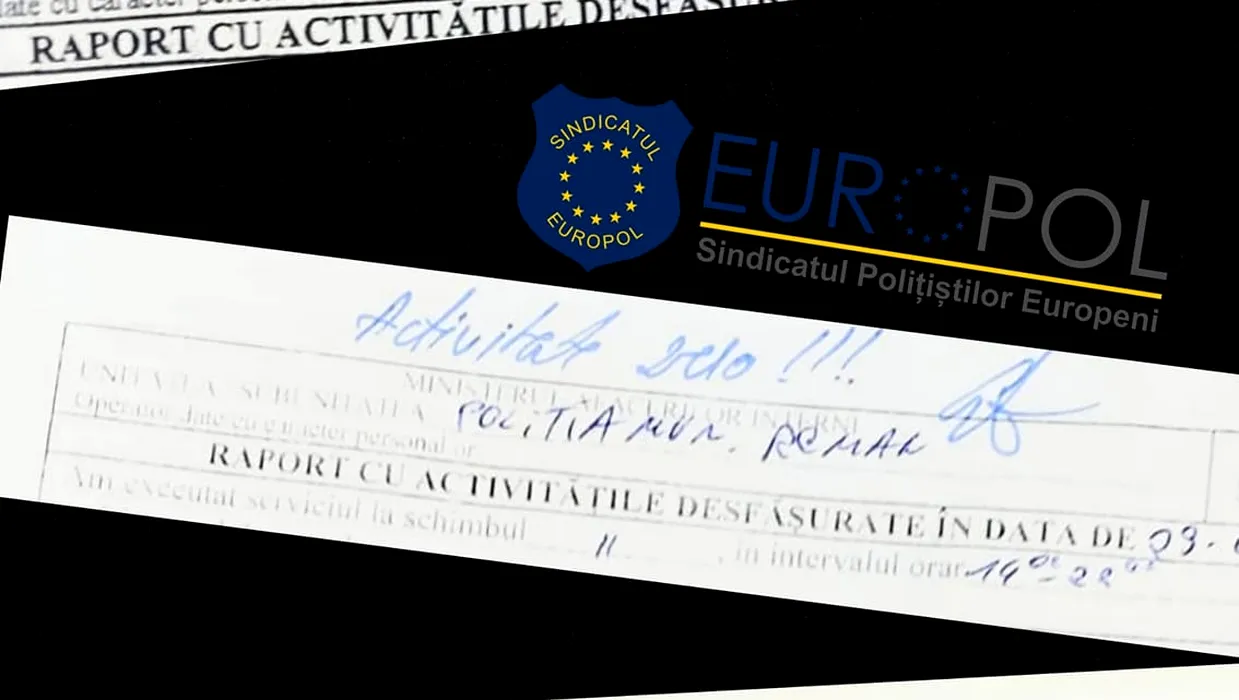 date cu caracter
RAPORT CU ACTIVITĂȚILE DESFĂȘUR
SINDICATUL
EUROPOL
EUROPOL
Sindicatul Polițiștilor Europeni
Activitate zero !!!
MINISTERUL AFACERILOR INTERNE
UNITATEA / SUBUNITATEA POLIȚIA MUN. ROMAN
Operator date cu caracter personal nr.
RAPORT CU ACTIVITĂȚILE DESFĂȘURATE ÎN DATA DE 09.
Am executat serviciul la schimbul II, în intervalul orar 14 00 - 22 00